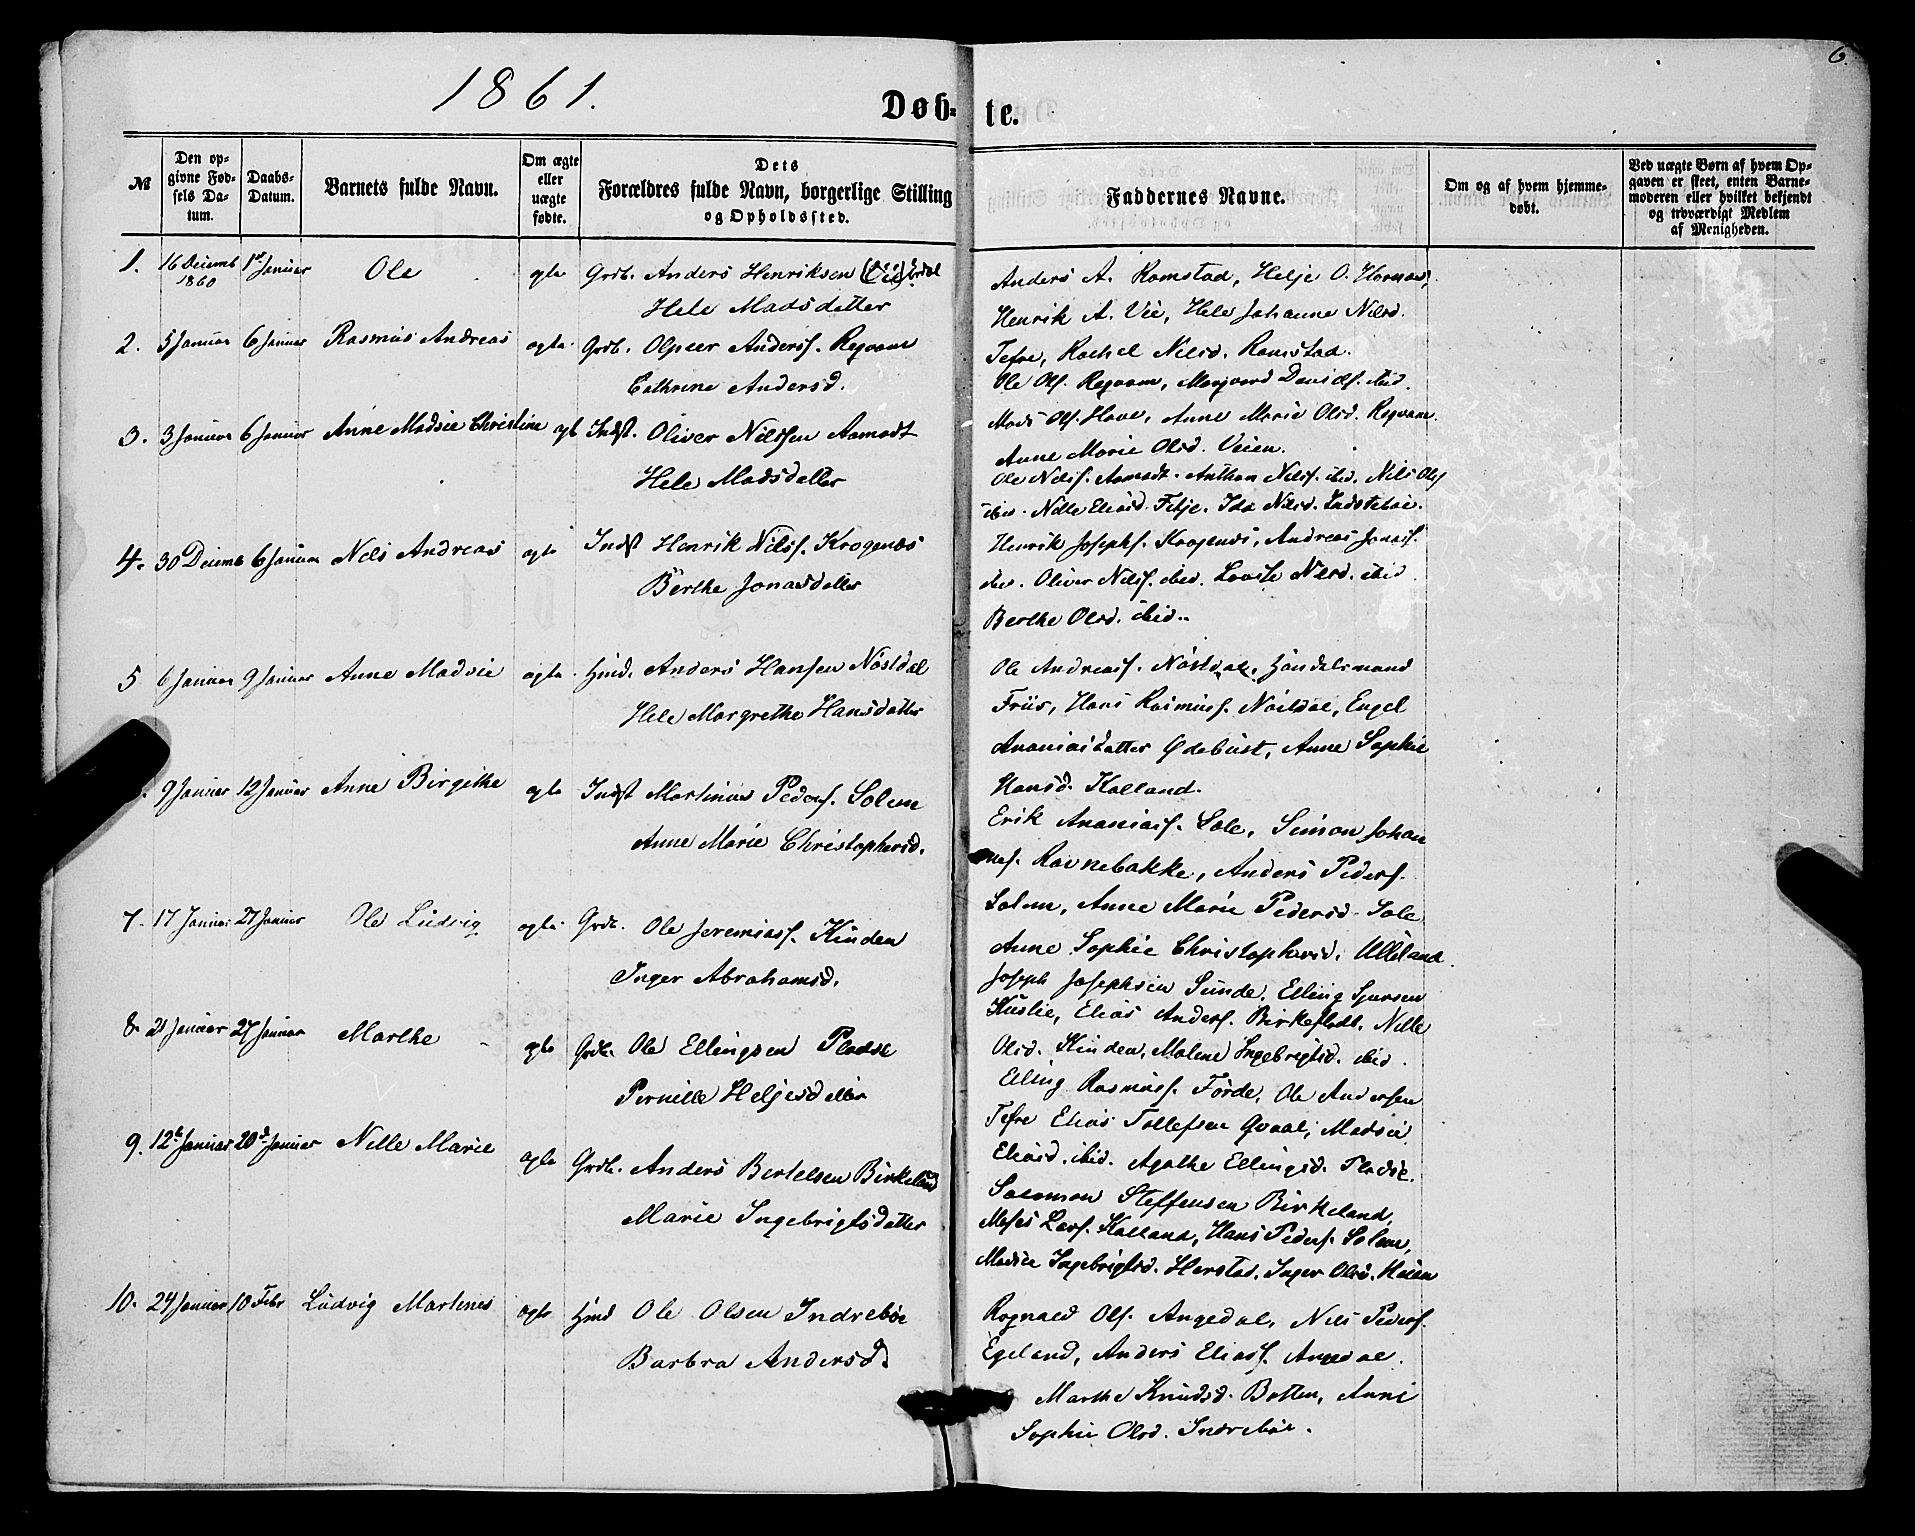 1861.
6.
Døb- te.
№
Den op-
givne Fød-
sels Da-
tum.
Daabs-
Datum.
Barnets fulde Navn.
Om ægte
eller
uægte
fødte.
Dets
Forældres fulde Navn, borgerlige Stilling
og Opholdssted.
Faddernes Navne.
Om og af hvem hjemme-
døbt.
Ved uægte Børn af hvem Op-
gaven er skeet, enten Barne-
moderen eller hvilket bekjendt
og troværdigt Medlem
af Menigheden.
1. 16 Decemb 1860 1st Januar Ole ægte Grdb. Anders Henriksen
Hele Madsdatter
Anders A. Ramstad, Helje O. Hornæs,
Henrik A. Vie, Hele Johanne Nilsd.
Tefre, Rachel Nilsd. Ramstad.
2. 5 Januar 6 Januar Rasmus Andreas ægte Grdb. Anders. Reqvam
Cathrine Andersd.
Ole Ols. Reqvam, Davids. ibid.
Mads Ols. Hove, Anne Marie Olsd. Reqvam
Anne Marie Olsd. Veien.
3. 3 Januar 6 Januar Anne Madsie Christine ægt Indst. Oliver Nilssen Aamodt
Hele Madsdatter
Ole Nilss. Aamodt. Anthon Nilss. ibid. Nils Ols
ibid. Nille Eliasd. Febje. Ida Nilsd. Indstebøe.
4. 30 Decemb 6 Januar Nils Andreas ægte Indst Henrik Nilss. Krogenæs
Berthe Jonasdatter
Henrik Josephs. Krogenæs, Andreas Jonass.
ibid. Oliver Nilss. ibid. Lovise Nilsd. ibid.
Berthe Olsd. ibid.
5 6 Januar 9 Januar Anne Madsie ægte Hmd. Anders Hansen Nøstdal
Hele Margrethe Hansdatter
Ole Andreass. Nøstdal, Handelsmand
Friis, Hans Rasmuss. Nøstdal, Engel
Ananiasdatter Ødebust, Anne Sophie
Hansd. Kalland.
9 Januar 12 Januar Anne Birgithe ægte Indst Martinus Peders. Solem
Anne Marie Christophersd.
Erik Ananiass. Sole, Simon Johan
nes. Ravnebakke, Anders Peders.
Solem, Anne Marie Pedersd. Sole
Anne Sophie Christophersd. Ulleland
7. 17 Januar 27 Januar Ole Ludvig ægte Grdb. Ole Jeremiass. Kinden
Inger Abrahamsd.
Joseph Josephsen Sunde, Elling Sjursen
Huslie, Elias Anders. Birkeflodt, Nille
Olsd. Kinden, Malene Ingebrigtsd. ibid.
8. 21 Januar 27 Januar Marthe ægte Grdb. Ole Ellingsen Pladse
Pernille Heljesdatter
Elling Rasmuss. Førde, Ole Andersen
Tefre Elias Tollefsen Qvaal, Madsie
Eliasd. ibid. Agathe Ellingsd. Pladse.
9. 12te Januar 20de Januar Nille Marie ægte Grdb. Anders Bertelsen Birkeland
Marie Ingebrigtsdatter
Salomon Steffensen Birkeland,
Moses Lars. Kalland, Hans Peders. Solem,
Madsie Ingebrigtsd. Harstad, Inger Olsd.
10. 24 Januar 10 Febr Ludvig Martines ægte Hmd Ole Olsen Indrebøe
Barbra Andersd.
Rognald Ols. Angedal, Nils Peders.
Egeland, Anders Eliass. Angedal.
Marthe Knudsd. Botten, Anne
Sophie Olsd. Indrebøe.